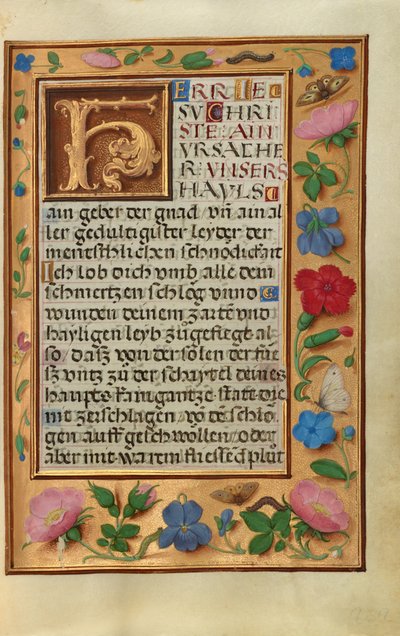 HERR IE
SU CHRI
STE AIN
VRSACHE
R UNSERS
HAYLS
ain geber der gnad vñ ain al
ler gedultigister leyder der
mentschlichen schnödickait
Ich lob dich vmb alle dein
schmertzen schlög vnnd
wunden deinem zarten vnd
hayligen leyb zůgefiegt al
so daſz von der solen der fie
sz vntz zů der schaytel deines
haupts kain gantze statt die
nit zerschlagen võ de schlö
gen auff geschwollen oder
aber mit warem fliessẽd plůt